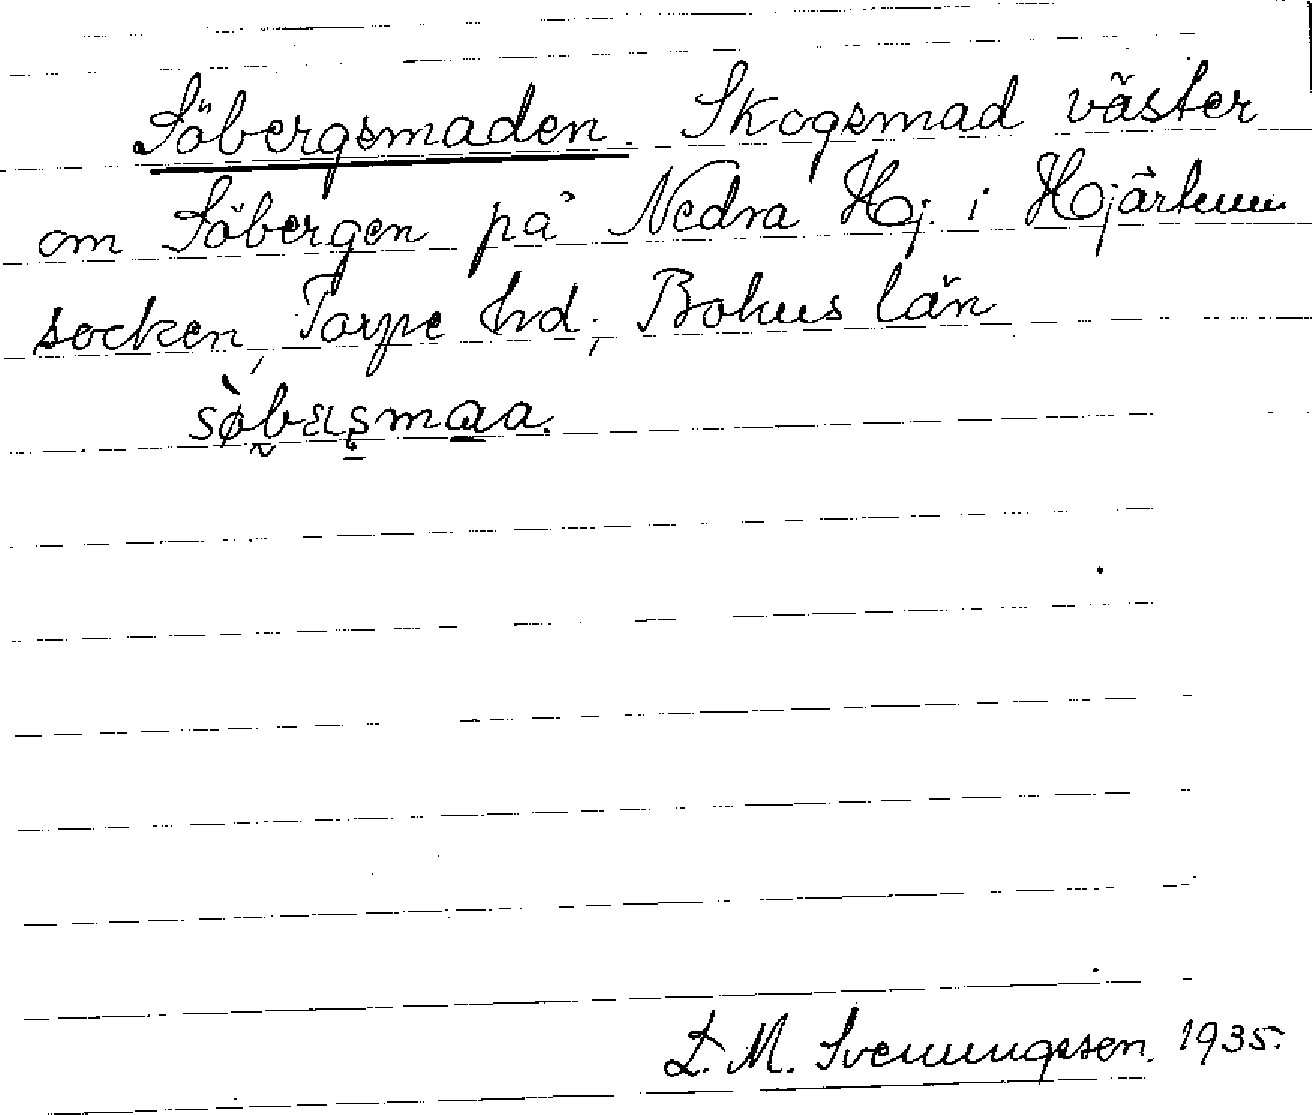 Söbergsmaden. Skogsmad väster
om Söbergen på Nedra Hoj. i Hjärtums
socken, Torpe hrd; Bohus län
L. M. Svenungsson. 1935.